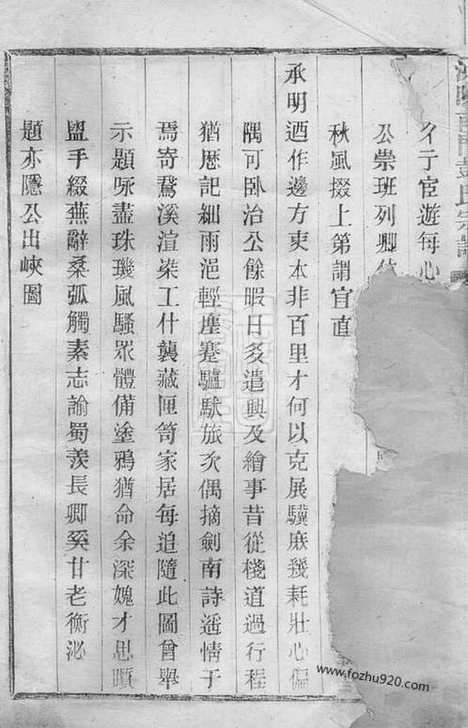 久于宦遊每心
公崇班列卿
秋風掇上第謂宜直
承明迺作邊方吏本非百里才何以克展驥庥幾耗壯心偏
隅可卧治公餘暇日多遣興及繪事昔從棧道過行程
猶歷記細雨浥輕塵蹇驢馱旅次偶摘劍南詩遥情于
焉寄鵞溪渲染工什襲藏匣笥家居每追隨此圖曾舉
示題咏盡珠璣風騷眾體備塗鴉猶命余深媿才思躓
盥手綴蕪辭桑弧觸素志諭蜀羨長卿奚甘老衡泌
題亦隱公出峽圖
www.fozhu920.com